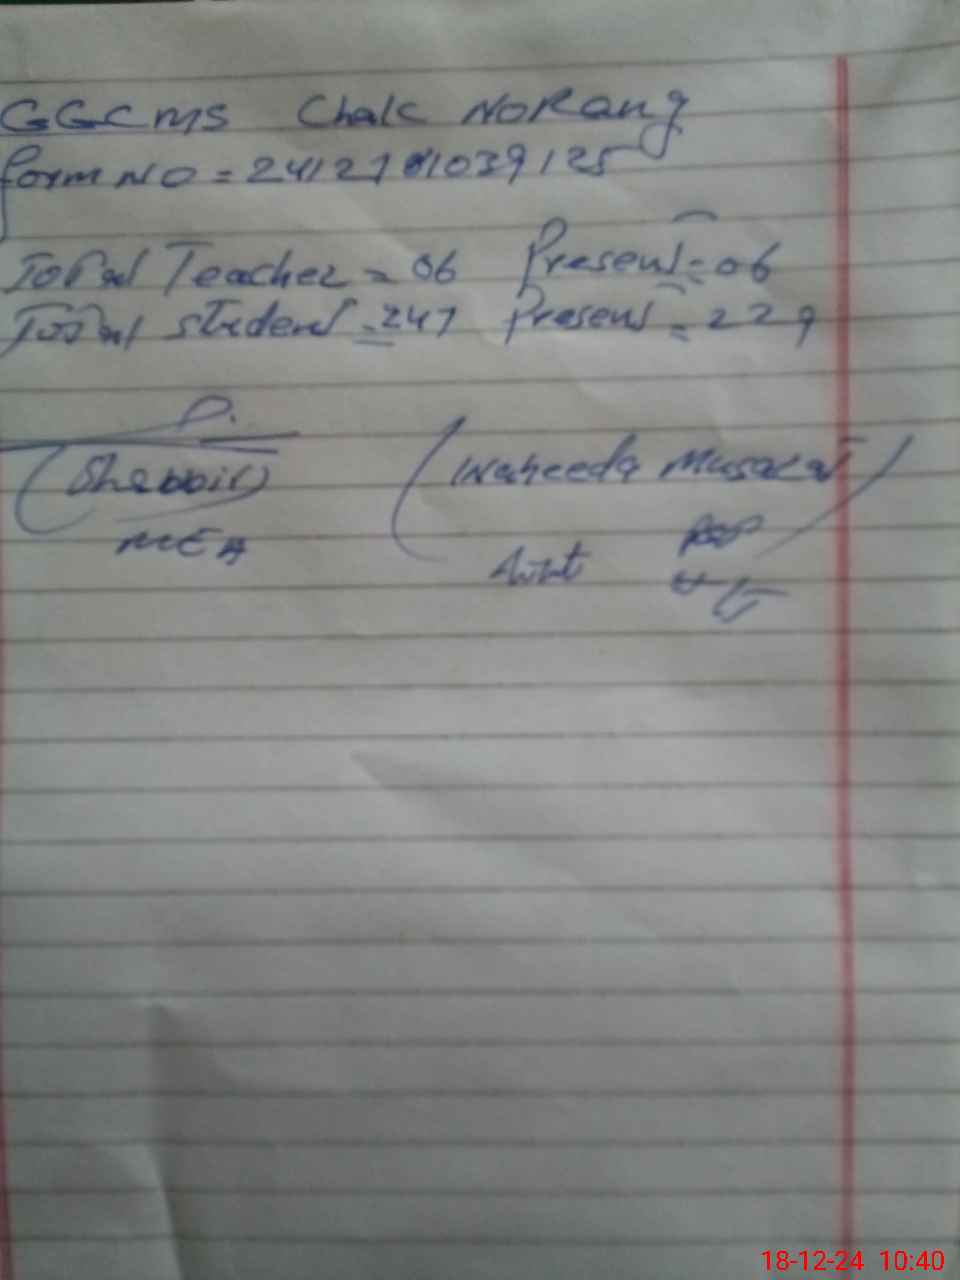 GGCMS Chak NoRang
form NO = 2412181039125
Total Teacher = 06 Present = 06
Total student = 247 Present = 229
(Shabbir) (Naheeda Musarat)
MEA
18-12-24 10:40